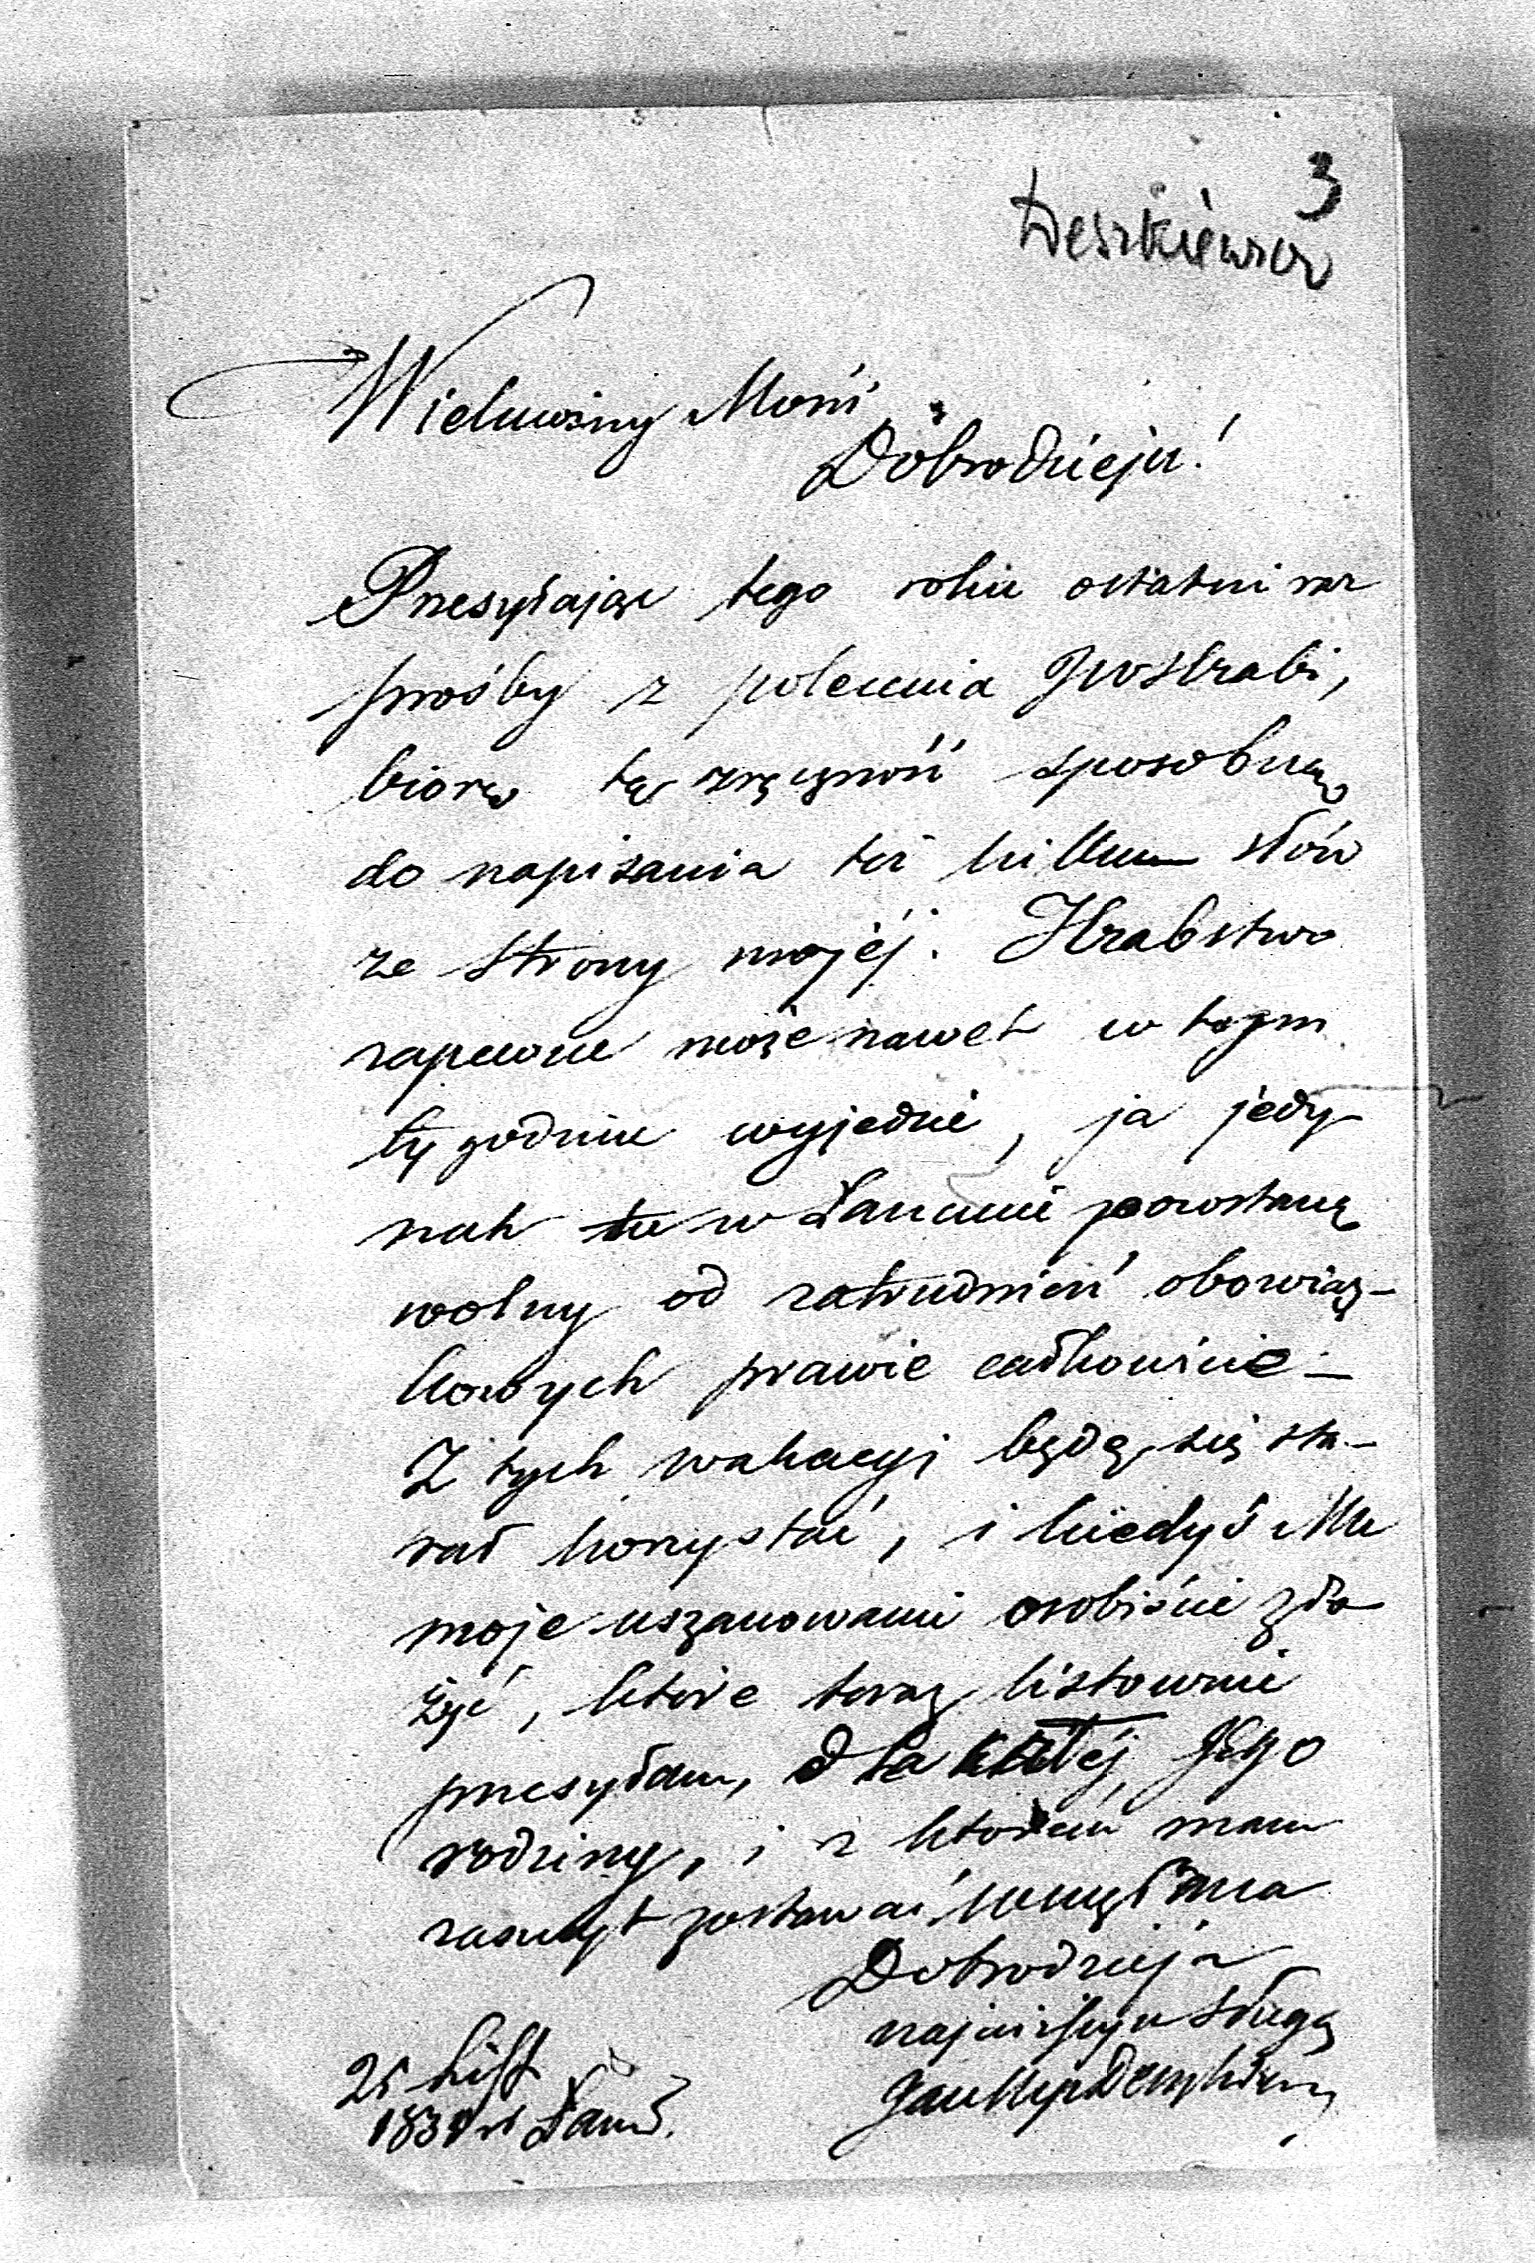 3
Deszkiewicz
Wielmożny Mości
Dobrodzieju!
Przesyłając tego roku ostatni raz
prośby z polecenia JWHrabi,
biorę tę zręczność sposobną
do napisania też kilku słów
ze strony mojéj. Hrabstwo
zapewne może nawet w tym
tygodniu wyjedzie, ja jedy-
nak w Łańcucie pozostanę
wolny od zatrudnień obowiąz-
kowych prawie całkowicie –
Z tych wakacyj będę się sta-
rał korzystać, i kiedyś Mu
moje uszanowanie osobiście zło
żyć, które teraz listownie
przesyłam, dla całéj Jego
rodziny, i z którém mam
zaszczyt zostawać
Dobrodzieja
najniższym sługą
Jan Nep Deszkiewicz
25 List
183 Łańc.